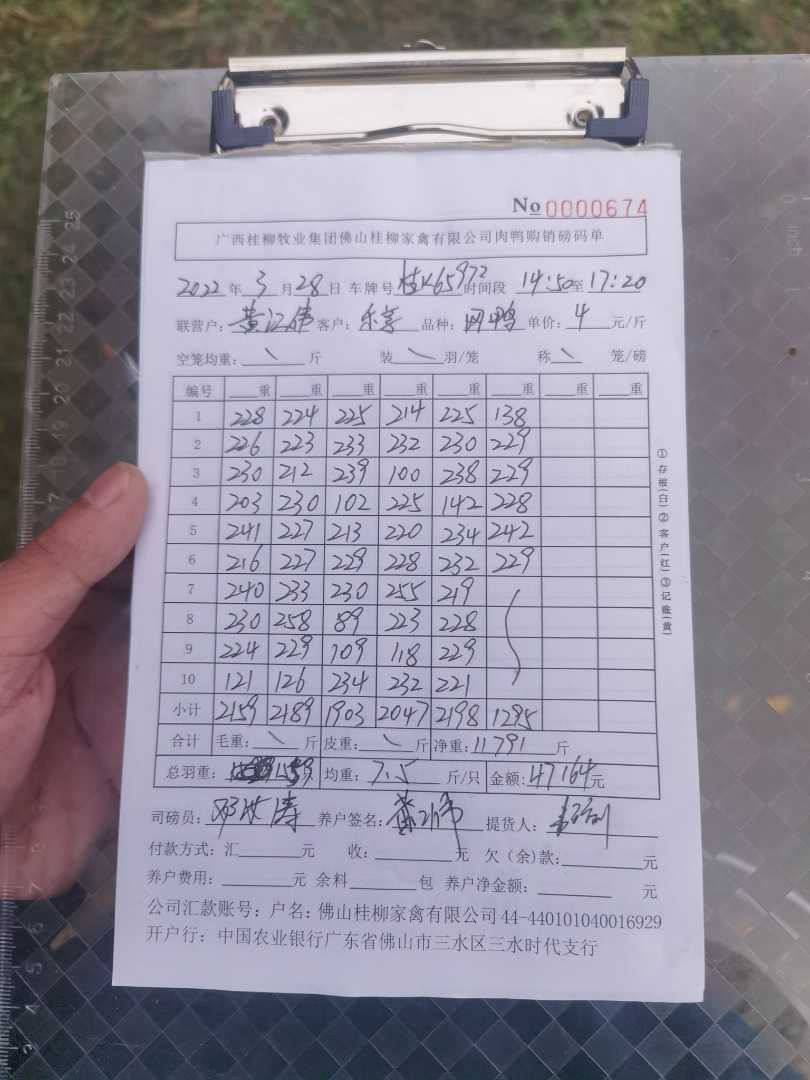 No 0000674
广西桂柳牧业集团佛山桂柳家禽有限公司肉鸭购销磅码单
2022 年 3 月 28 日 车牌号 桂K65972 时间段 14:50 至 17:20
联营户: 黄江伟 客户: 乐亭 品种: 网鸭 单价: 4 元/斤
空笼均重: \ 斤 装 \ 羽/笼 称 \ 笼/磅
编号 重 重 重 重 重 重 重 重
1 228 224 225 214 225 138
2 226 223 233 232 230 229
3 230 212 239 100 238 229
4 203 230 102 225 142 228
5 241 227 213 220 234 242
6 216 227 229 228 232 229
7 240 233 230 255 219
8 230 258 89 223 228
9 224 229 109 118 229
10 121 126 234 232 221
小计 2159 2189 1903 2047 2198 1295
合计 毛重: \ 斤 皮重: \ 斤 净重: 11791 斤
总羽重: 均重: 7.5 斤/只 金额: 47164 元
司磅员: 养户签名: 提货人:
付款方式: 汇 元 收: 元 欠(余)款: 元
养户费用: 元 余料 包 养户净金额: 元
公司汇款账号: 户名: 佛山桂柳家禽有限公司 44-440101040016929
开户行: 中国农业银行广东省佛山市三水区三水时代支行
①存根(白)②客户(红)③记账(黄)